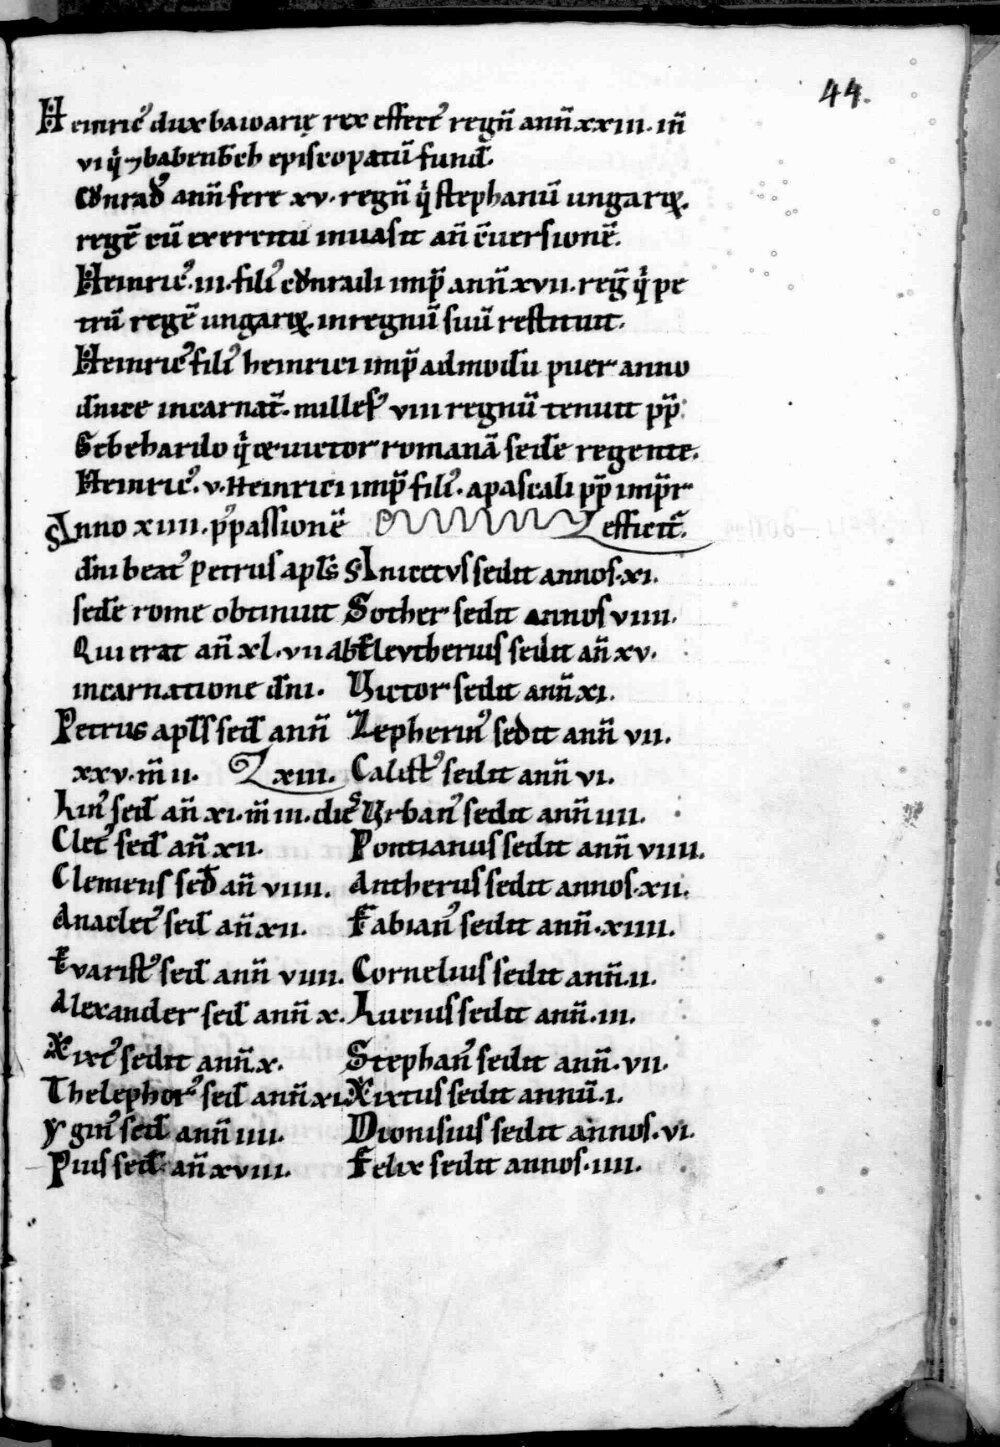 44.
Heinric᷒ dux bawarię rex effect᷒ regn̄ ann̄ xxiii. in̄
vi q̇ ⁊ babenb̄ch episcopatū fund̄.
Cŏnrad᷒ ann̄ fere xv. regn̄ q̇ stephanū ungarię.
regē cū exercitu inuasit an̄ c̄uersionē.
Heinric᷒. iii. fili᷒ cŏnradi imp̄ ann̄ xvii. reḡ q̇ pe
trū regē ungarię. in regnū suū restituit.
Heinric᷒ fili᷒ heinrici imp̄ admodū puer anno
dn̄ice incarnat̄. milles᷒ viii regnū tenuit pp̄.
Gebehardo q̇ ⁊ victor romanā sedē regente.
Heinric᷒. v. Heinrici imp̄ fili᷒. a pascali pp̄ imp̄r
efficit᷑.
Anno xiiii. p᷒ passionē
dn̄i beat᷒ Petrus apl̄s
sedē rome obtinuit
Qui erat an̄ xl. vii ab
incarnatione dn̄i.
Petrus apl̄s sed̄ ann̄
xxv. m̄ ii. xiii.
Lin᷒ sed̄ an̄ xi. m̄ iii. dies
Clet᷒ sed̄ an̄ xii.
Clemens sed̄ an̄ viiii.
Anaclet᷒ sed̄ an̄ xii.
Evarist᷒ sed̄ ann̄ viiii.
Alexander sed̄ ann̄ x.
Xixt᷒ sedit ann̄. x.
Thelephor᷒ sed̄ ann̄ xi
Ygin᷒ sed̄ ann̄ iiii.
Pius sed̄. an̄ xviii.
Anicetvs sedit annos. xi.
Sother sedit annos viiii.
Elevtherius sedit an̄ xv.
Victor sedit ann̄ xi.
Zepherin᷒ sedit ann̄ vii.
Calist᷒ sedit ann̄ vi.
Vrban᷒ sedit ann̄ iiii.
Pontianus sedit ann̄ viiii.
Antherus sedit annos. xii.
Fabian᷒ sedit ann̄. xiiii.
Cornelius sedit ann̄. ii.
Lucius sedit ann̄. iii.
Stephan᷒ sedit ann̄. vii.
Xixtus sedit annū. i.
Dionisius sedit annos. vi.
Felix sedit annos. iiii.